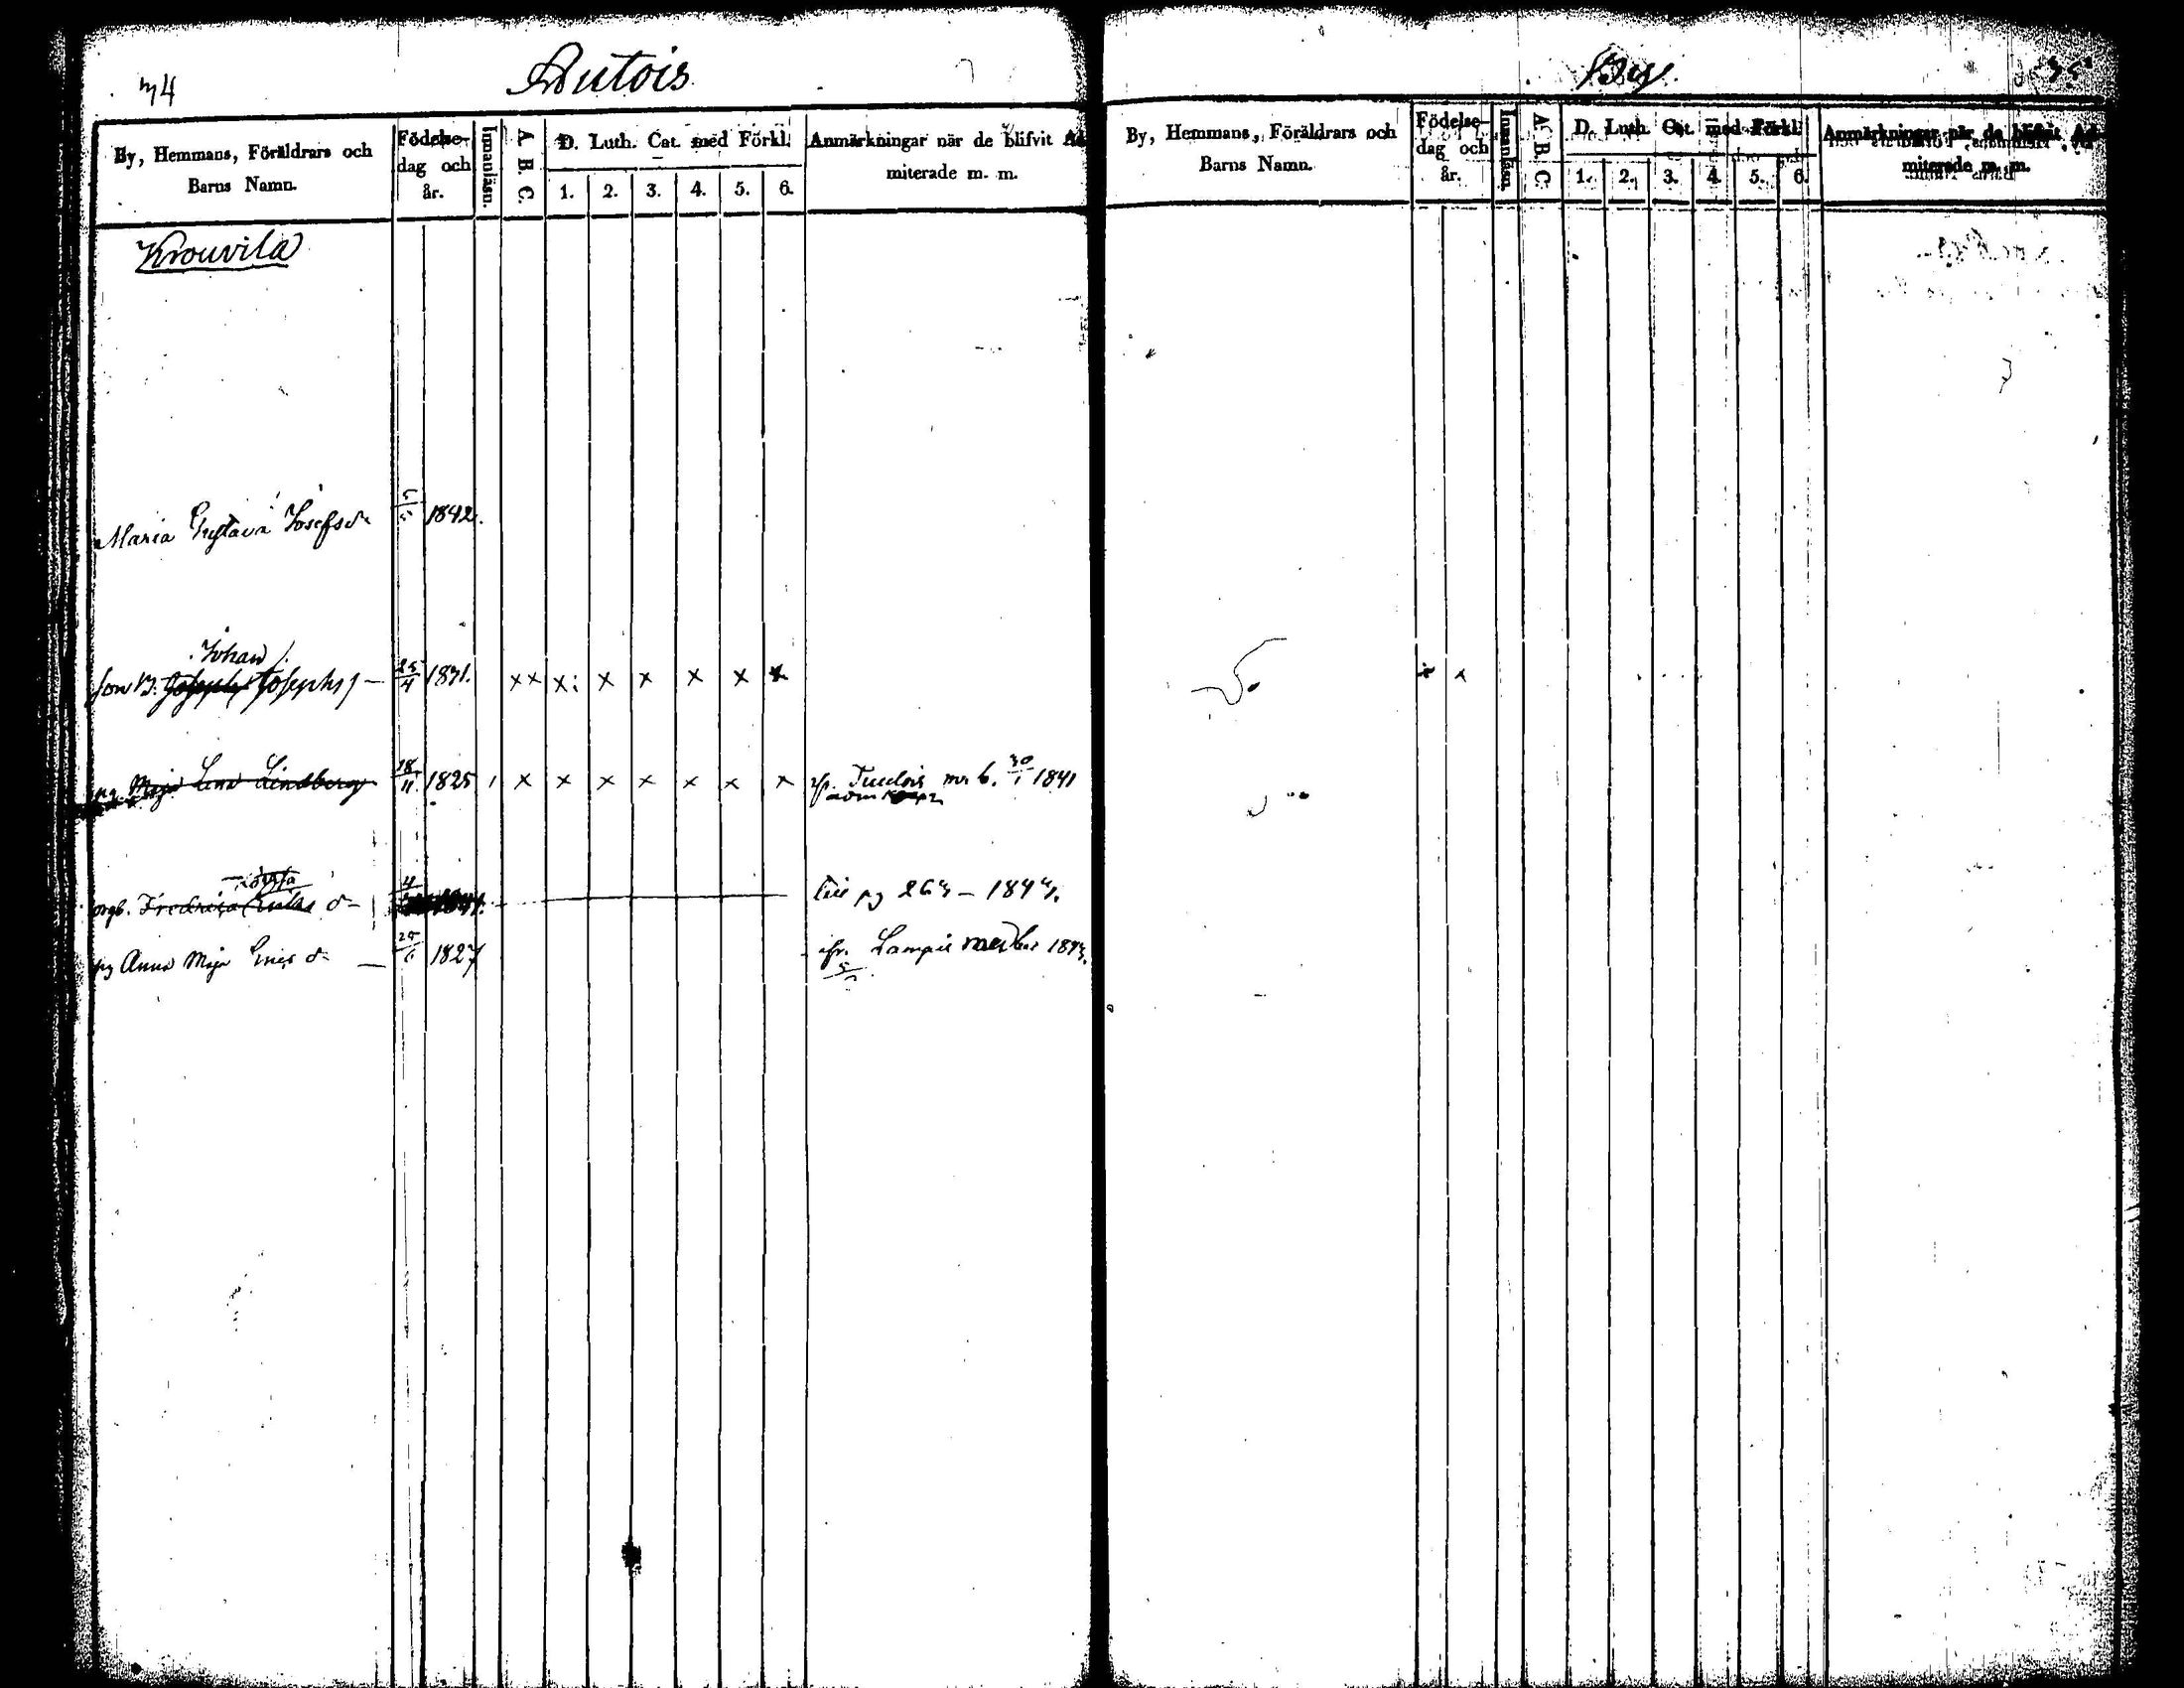 34
Autois
By, Hemmans, Föräldrars och
Barns Namn.
Födelse-
dag och
år.
Innanläsn.
A. B. C.
D. Luth. Cat. med Förkl.
1. 2. 3. 4. 5. 6.
Anmärkningar när de blifvit Ad-
miterade m. m.
Krouvila
Maria Gustava Josefsdr 1842.
Johan
Son B. Joseph Josephs 25/4 1831. x x x: x x x x x
pig Maja Lena Lindberg 18/11 1825 x x x x x x x ifr. Tuulois m. b. 30/1 1841
Fredrica till pg 263 - 1843.
pg Anna Maja 1827 ifr. Lampis 1843.
By.
35
By, Hemmans, Föräldrars och
Barns Namn.
Födelse-
dag och
år.
Innanläsn.
A. B. C.
D. Luth. Cat. med Förkl.
1. 2. 3. 4. 5. 6.
Anmärkningar när de blifvit Ad-
miterade m. m.